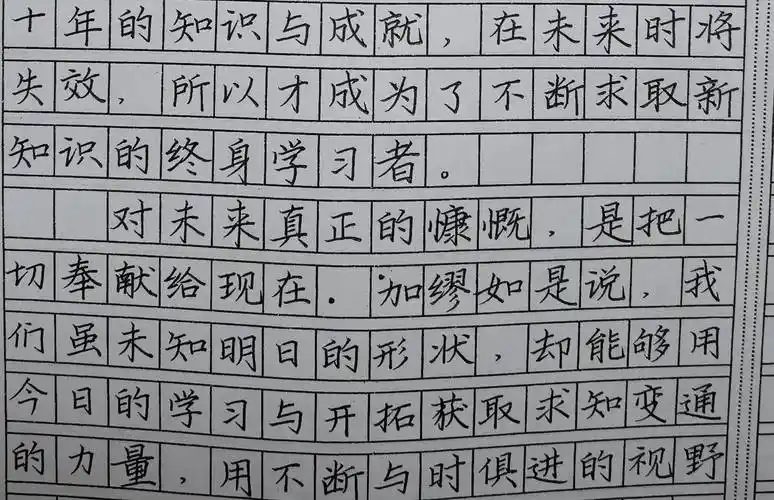 十年的知识与成就，在未来时将
失效，所以才成为了不断求取新
知识的终身学习者。
对未来真正的慷慨，是把一
切奉献给现在．加缪如是说，我
们虽未知明日的形状，却能够用
今日的学习与开拓获取求知变通
的力量，用不断与时俱进的视野